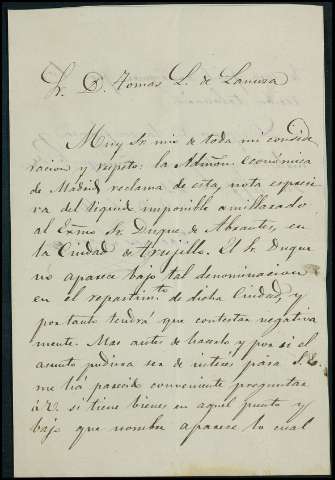 Sr. D. Tomas L. de Lanuza
Muy Sr. mio de toda mi conside-
racion y respeto: la Admon. económica
de Madrid reclama de esta, nota espresi-
va del liquido imponible amillarado
al Escmo Sr. Duque de Abrantes, en
la Ciudad de Trujillo. El Sr. Duque
no aparece bajo tal denominacion
en el repartimto. de dicha Ciudad, y
por tanto tendrá que contestar negativa-
mente. Mas antes de hacerlo y por si el
asunto pudiera ser de interés para S.E.
me há parecido conveniente preguntar
á V. si tiene bienes en aquel punto y
bajo que nombre aparece lo cual